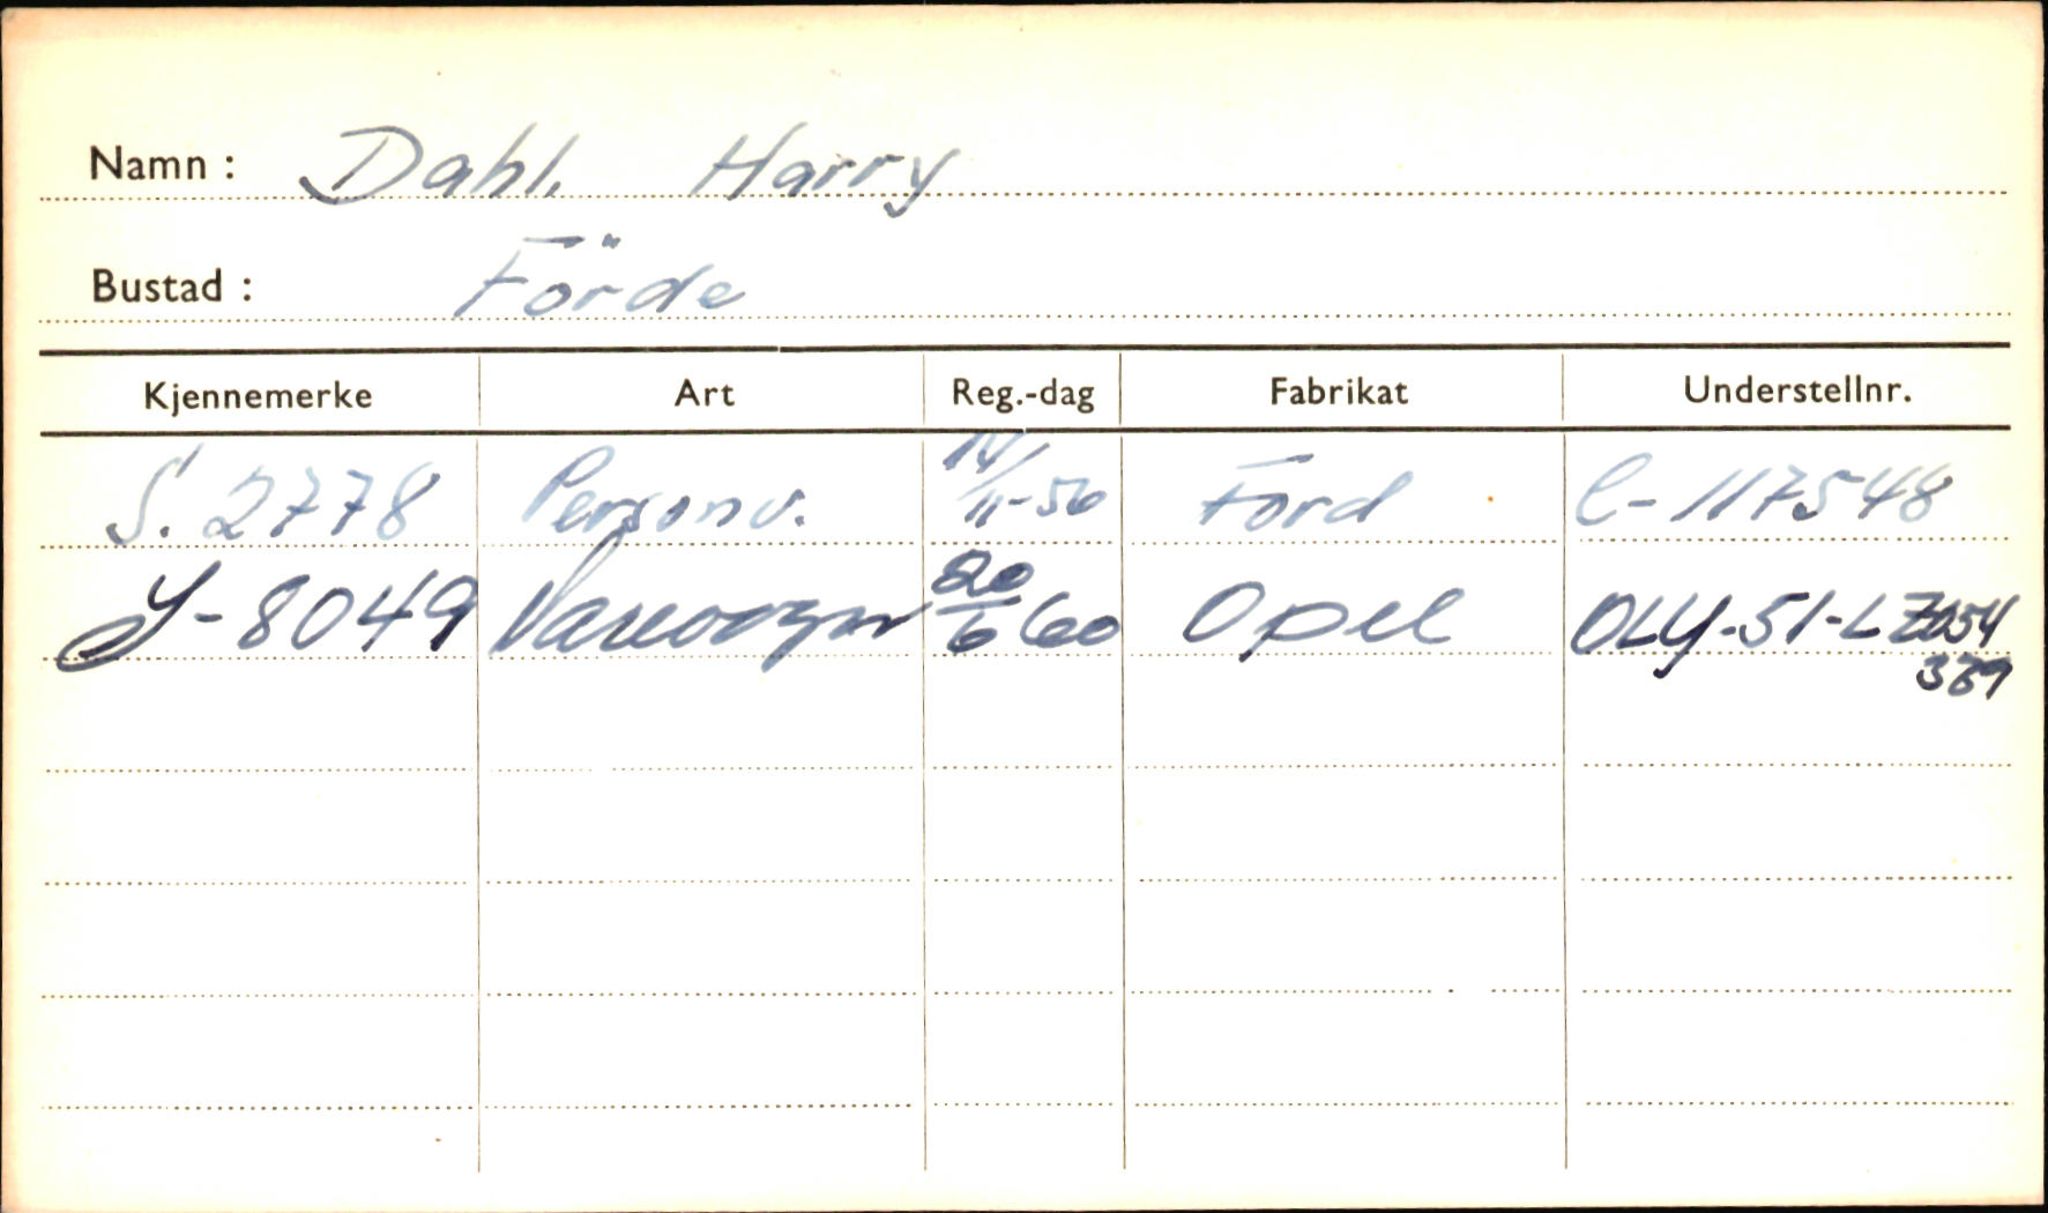 Namn : Dahl. Harry
Bustad : Förde
Kjennemerke Art Reg.-dag Fabrikat Understellnr.
S. 2778 Personv. 14/11-56 Ford C-117548
S-8049 Varevogn 20/6 60 Opel OLY-51-L